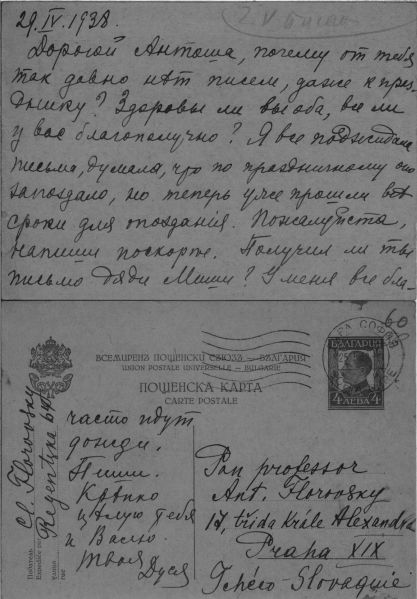 29.IV.1938.
Дорогой Антоша, почему от тебя
так давно нѣт писем, даже к праз-
днику? Здоровы ли вы оба, все ли
у вас благополучно? Я все поджидала
письма, думала, что по праздничному оно
запоздало, но теперь уже прошли всѣ
сроки для опоздания. Пожалуйста,
напиши поскорѣе. Получил ли ты
письмо дяди Миши? У меня все бла-
60
ВСЕМИРЕНЪ ПОЩЕНСКИ СЪЮЗЪ – БЪЛГАРИЯ
UNION POSTALE UNIVERSELLE – BULGARIE
ПОЩЕНСКА КАРТА
CARTE POSTALE
БЪЛГАРИЯ
4 ЛЕВА 4
Cl. Florovsky
Regentska
Податель
Expéditeur
Улица
rue
часто идут
дожди.
Пиши.
Крѣпко
цѣлую тебя
и Васю.
Твоя
Дуся
Pan professor
Ant. Florovsky
17, třida Krále Alexandra
Praha XIX
Tchéco-Slovaquie